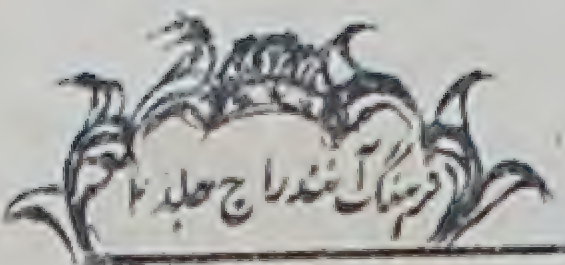 فرهنگ آنندراج جلد ۲